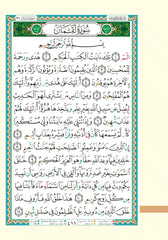 سُورَةُ لُقْمَانَ
بِسْمِ ٱللَّهِ ٱلرَّحْمَٰنِ ٱلرَّحِيمِ
الٓمٓ ١ تِلْكَ ءَايَٰتُ ٱلْكِتَٰبِ ٱلْحَكِيمِ ٢ هُدًى وَرَحْمَةً
لِّلْمُحْسِنِينَ ٣ ٱلَّذِينَ يُقِيمُونَ ٱلصَّلَوٰةَ وَيُؤْتُونَ ٱلزَّكَوٰةَ وَهُم
بِٱلْءَاخِرَةِ هُمْ يُوقِنُونَ ٤ أُو۟لَٰٓئِكَ عَلَىٰ هُدًى مِّن رَّبِّهِمْ وَأُو۟لَٰٓئِكَ
هُمُ ٱلْمُفْلِحُونَ ٥ وَمِنَ ٱلنَّاسِ مَن يَشْتَرِى لَهْوَ ٱلْحَدِيثِ
لِيُضِلَّ عَن سَبِيلِ ٱللَّهِ بِغَيْرِ عِلْمٍ وَيَتَّخِذَهَا هُزُوًا أُو۟لَٰٓئِكَ لَهُمْ
عَذَابٌ مُّهِينٌ ٦ وَإِذَا تُتْلَىٰ عَلَيْهِ ءَايَٰتُنَا وَلَّىٰ مُسْتَكْبِرًا
كَأَن لَّمْ يَسْمَعْهَا كَأَنَّ فِىٓ أُذُنَيْهِ وَقْرًا فَبَشِّرْهُ بِعَذَابٍ أَلِيمٍ ٧
إِنَّ ٱلَّذِينَ ءَامَنُوا۟ وَعَمِلُوا۟ ٱلصَّٰلِحَٰتِ لَهُمْ جَنَّٰتُ ٱلنَّعِيمِ ٨
خَٰلِدِينَ فِيهَا وَعْدَ ٱللَّهِ حَقًّا وَهُوَ ٱلْعَزِيزُ ٱلْحَكِيمُ ٩ خَلَقَ
ٱلسَّمَٰوَٰتِ بِغَيْرِ عَمَدٍ تَرَوْنَهَا وَأَلْقَىٰ فِى ٱلْأَرْضِ رَوَٰسِىَ أَن تَمِيدَ
بِكُمْ وَبَثَّ فِيهَا مِن كُلِّ دَآبَّةٍ وَأَنزَلْنَا مِنَ ٱلسَّمَآءِ مَآءً فَأَنۢبَتْنَا
فِيهَا مِن كُلِّ زَوْجٍ كَرِيمٍ ١٠ هَٰذَا خَلْقُ ٱللَّهِ فَأَرُونِى مَاذَا
خَلَقَ ٱلَّذِينَ مِن دُونِهِۦ بَلِ ٱلظَّٰلِمُونَ فِى ضَلَٰلٍ مُّبِينٍ ١١
٤١١